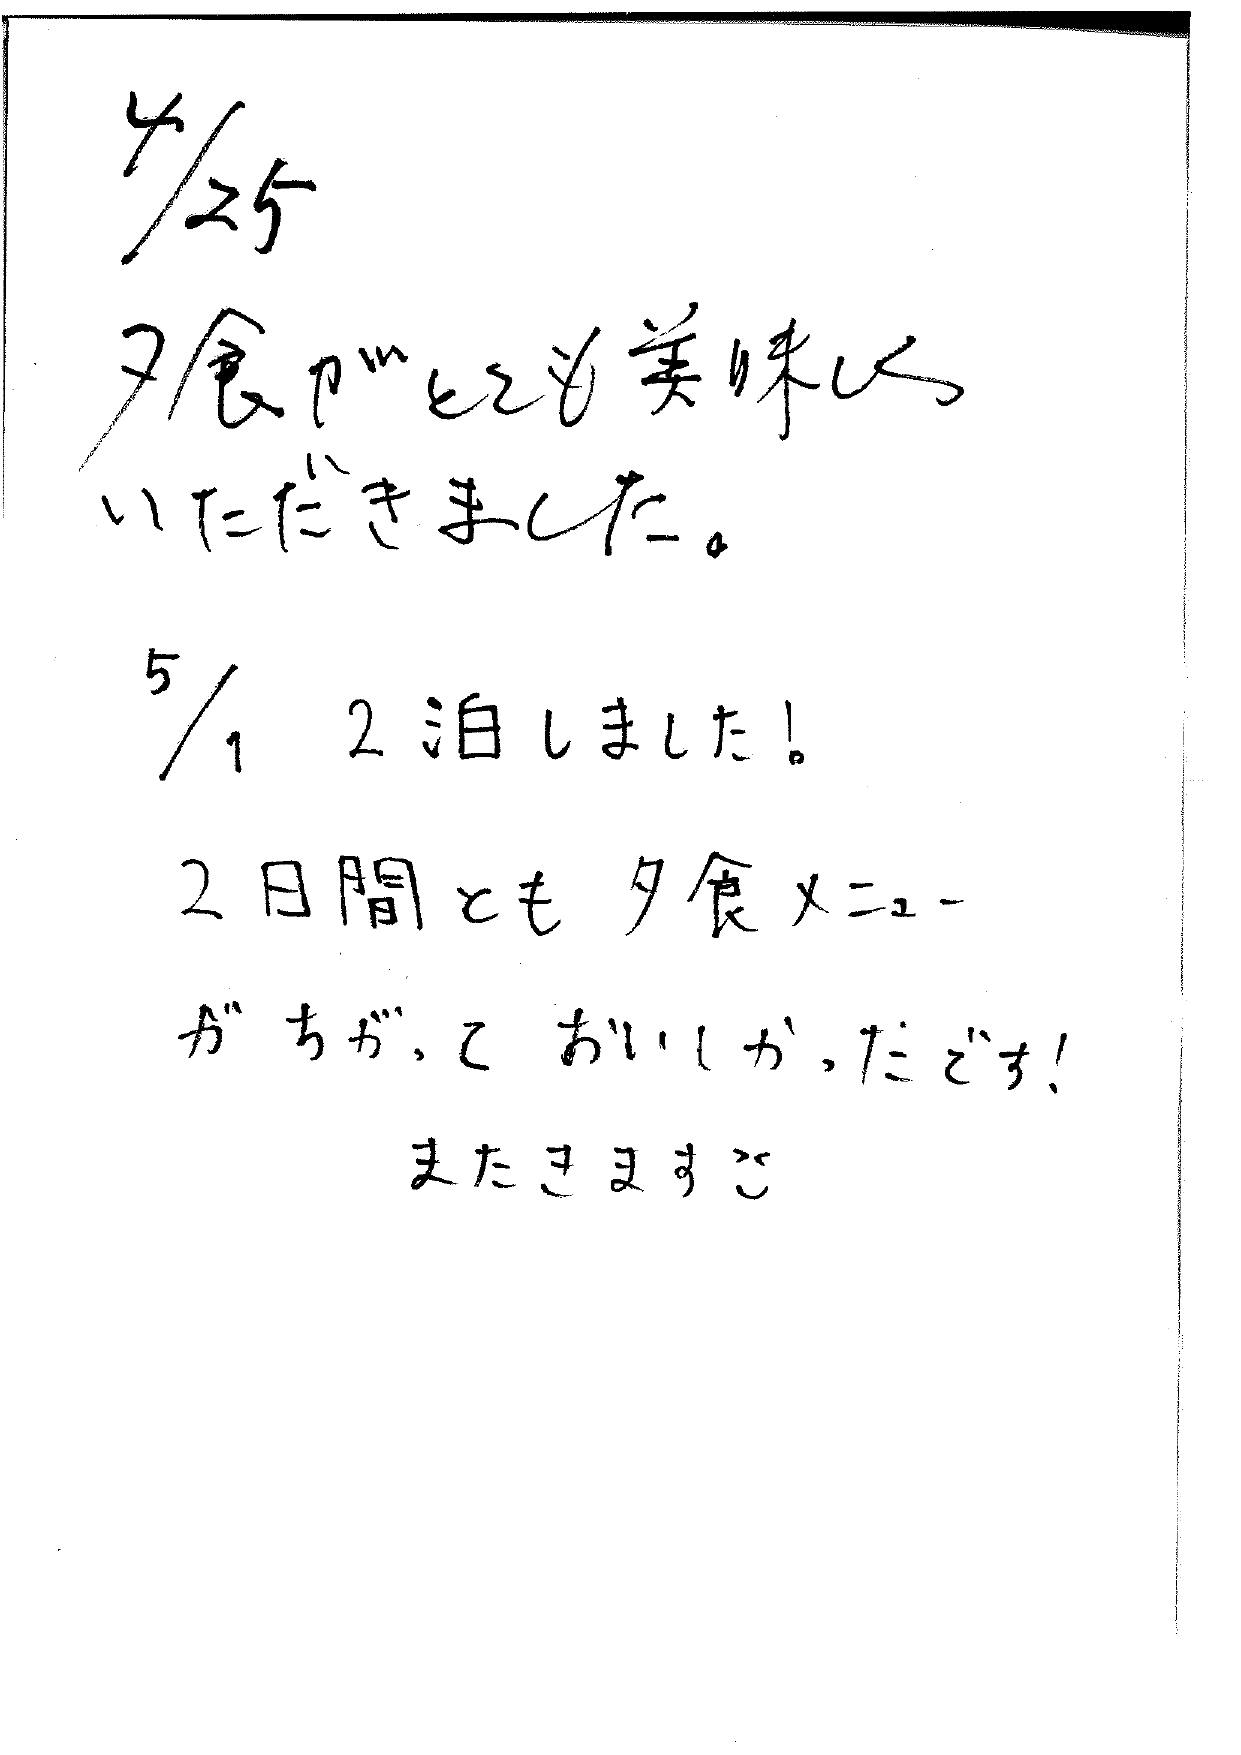 4/25
夕食がとても美味しく
いただきました。
5/1 2泊しました!
2日間とも夕食メニュー
がちがっておいしかったです!
またきます